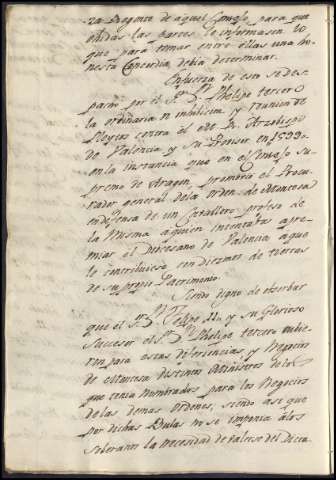 za Regente de aquel Consejo, para que
ohidas las partes le informasen lo
que para tomar entre ellas una ho-
nesta Concordia debia determinar.
En fuerza de esto se des-
pachò por el S.r D.n Phelipe tercero
la ordinaria
Pleytos contra el M. R. Arzobispo
de Valencia y su Provisor en 1599.
en la instancia que en el Consejo Su-
premo de Aragon, promovió el Procu-
rador general de la Orden de Montesa
en defensa de un Cavallero profeso de
la Misma a quien intentaba apre-
miar el Diocesano de Valencia a que
le contribuiese con diezmos de tierras
de su propio Patrimonio.
Siendo digno de observar
que el S.r D.n Felipe y su Glorioso
Successor el S.r D.n Phelipe tercero hubie-
ron para estas diferiencias y Negocios
de Montesa distintos Ministros de los
que tenia nombrados para los Negocios
de las demas Ordenes, siendo asi que
por dichas Bulas no se imponia a los
Soberanos la necesidad de valerse del Dicta-